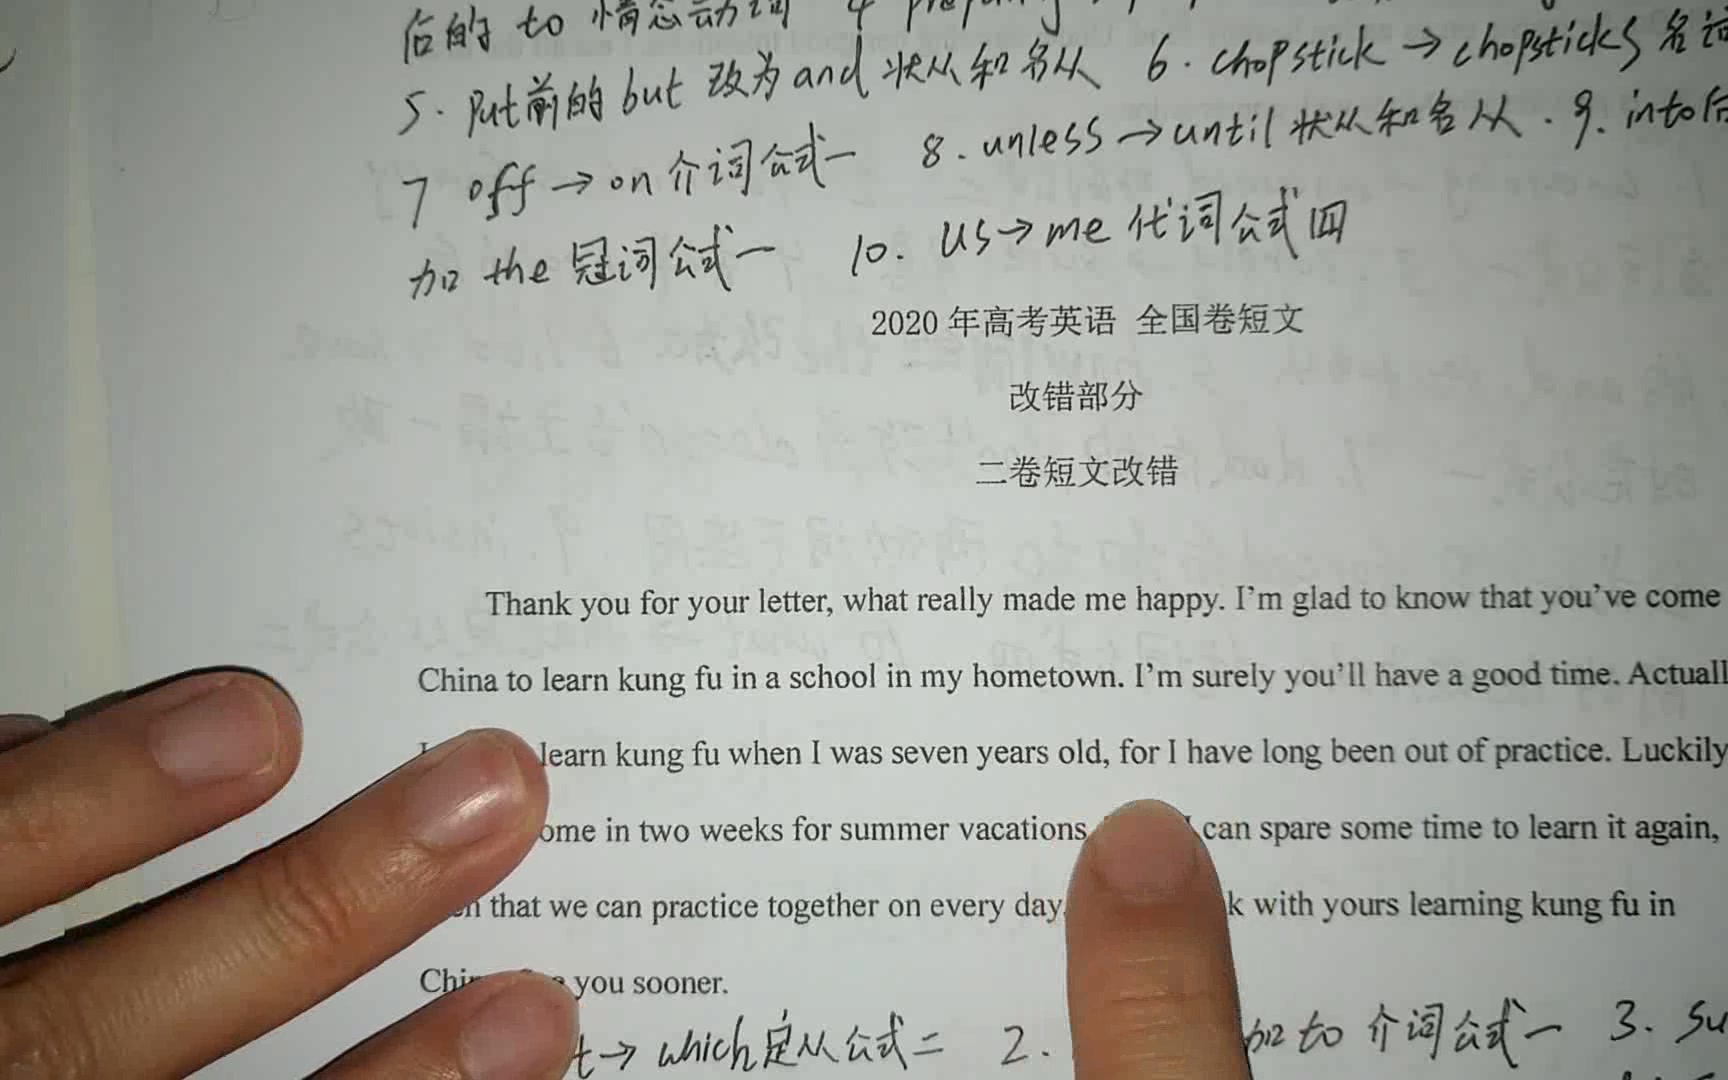 后的 to 情态动词 4
5. put前的 but 改为 and 状从和名从 6. chopstick → chopsticks 名词
7 off → on 介词公式一 8. unless → until 状从和名从. 9. into后
加 the 冠词公式一 10. us → me 代词公式四
2020 年高考英语 全国卷短文
改错部分
二卷短文改错
Thank you for your letter, what really made me happy. I'm glad to know that you've come
China to learn kung fu in a school in my hometown. I'm surely you'll have a good time. Actuall
learn kung fu when I was seven years old, for I have long been out of practice. Luckily
ome in two weeks for summer vacations can spare some time to learn it again,
that we can practice together on every day. k with yours learning kung fu in
you sooner.
t → which 定从公式二 2. 加 to 介词公式一 3. su